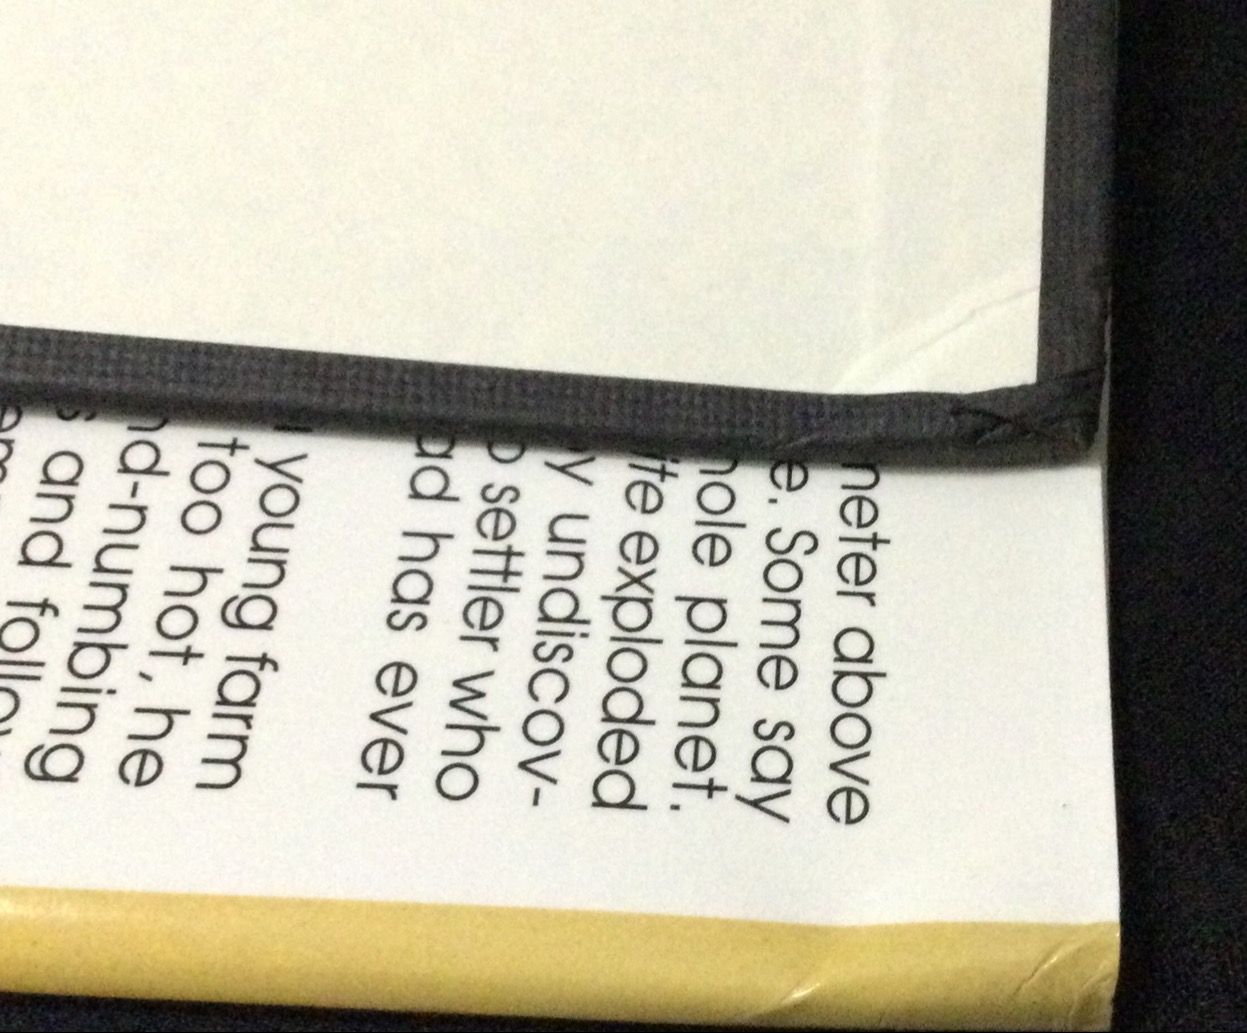 neter above
e. Some say
nole planet.
ife exploded
y undiscov-
o settler who
ad has ever
young farm
too hot, he
nd-numbing
s and follow